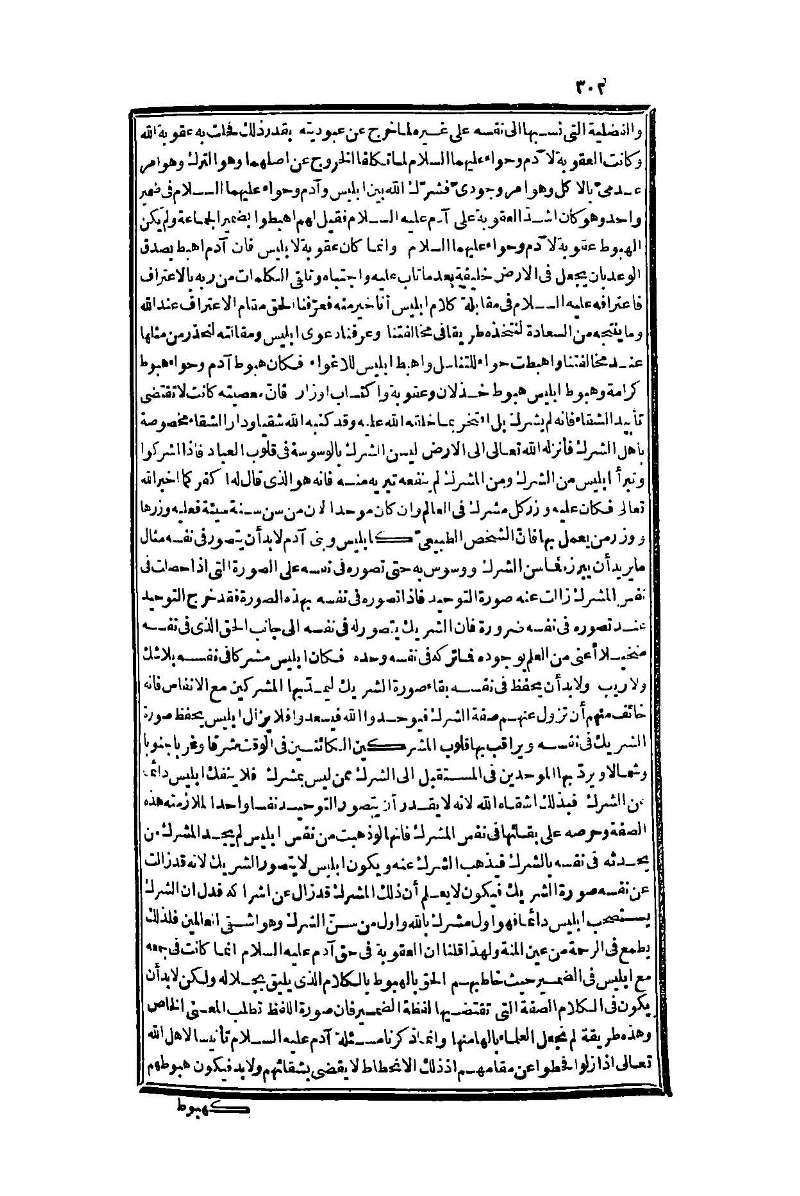 ٣٠٢
والفضلية التي نسبها الى نفسه على غيره لما خرج عن عبوديته بقدر ذلك فحلت به عقوبة الله
وكانت العقوبة لآدم وحواء عليهما السلام لما تكلفا الخروج عن اصلهما وهو الترك وهو امر
عدمي بالاكل وهو امر وجودي فشرك الله بين ابليس وآدم وحواء عليهما السلام في ضمير
واحد وهو كان اشد العقوبة على آدم عليه السلام فقيل لهم اهبطوا بضمير الجماعة ولم يكن
الهبوط عقوبة لآدم وحواء عليهما السلام وانما كان عقوبة لابليس فان آدم اهبط بصدق
الوعد بان يجعل في الارض خليفة بعد ما تاب عليه واجتباه وتلقى الكلمات من ربه بالاعتراف
فاعترافه عليه السلام في مقابلة كلام ابليس أنا خير منه فعرّفنا الحق مقام الاعتراف عند الله
وما ينتجه من السعادة لنتخذه طريقا في مخالفتنا وعرفنا دعوى ابليس ومقالته لنحذر من مثلها
عند مخالفتنا واهبطت حواء للتناسل واهبط ابليس للاغواء فكان هبوط آدم وحواء هبوط
كرامة وهبوط ابليس هبوط خذلان وعقوبة واكتساب اوزار فان معصيته كانت لا تقتضي
تأبيد الشقاء فانه لم يشرك بل افتخر بما خلقه الله عليه وقد كتبه الله شقيا ودار الشقاء مخصوصة
بأهل الشرك فأنزله الله تعالى الى الارض ليسن الشرك بالوسوسة في قلوب العباد فاذا اشركوا
وتبرأ ابليس من الشرك ومن المشرك لم ينفعه تبريه منه فانه هو الذي قال له اكفر كما اخبر الله
تعالى فكان عليه وزر كل مشرك في العالم وان كان موحدا لان من سن سنة سيئة فعليه وزرها
ووزر من يعمل بها فان الشخص الطبيعي كابليس وبني آدم لابد أن يتصور في نفسه مثال
ما يريد أن يبرزه فما سن الشرك ووسوس به حتى تصوره في نفسه على الصورة التي اذا حصلت في
نفس المشرك زالت عنه صورة التوحيد فاذا تصوره في نفسه بهذه الصورة فقد خرج التوحيد
عند تصوره في نفسه ضرورة فان الشريك يتصور له في نفسه الى جانب الحق الذي في نفسه
متخيلا أعني من العلم بوجوده فما تركه في نفسه وحده فكان ابليس مشركا في نفسه بلا شك
ولا ريب ولابد أن يحفظ في نفسه بقاء صورة الشريك ليمد بها المشركين مع الانفاس فانه
خائف منهم أن تزول عنهم صفة الشرك فيوحدوا الله فيسعدوا فلا يزال ابليس يحفظ صورة
الشريك في نفسه ويراقب بها قلوب المشركين الكائنين في الوقت شرقا وغربا جنوبا
وشمالا ويرد بها الموحدين في المستقبل الى الشرك ممن ليس بمشرك فلا ينفك ابليس دائما
عن الشرك فبذلك اشقاه الله لانه لا يقدر أن يتصور التوحيد نفسا واحدا لملازمته هذه
الصفة وحرصه على بقائها في نفس المشرك فانها لو ذهبت من نفس ابليس لم يجد المشرك من
يحدثه في نفسه بالشرك فيذهب الشرك عنه ويكون ابليس لا يتصور الشريك لانه قد زالت
عن نفسه صورة الشريك فيكون لا يعلم أن ذلك المشرك قد زال عن اشراكه فدل ان الشرك
يستصحب ابليس دائما فهو اول مشرك بالله واول من سن الشرك وهو اشقى العالمين فلذلك
يطمع في الرحمة من عين المنة ولهذا قلنا ان العقوبة في حق آدم عليه السلام انما كانت في جمعه
مع ابليس في الضمير حيث خاطبهم الحق بالهبوط بالكلام الذي يليق بجلاله ولكن لابد أن
يكون في الكلام الصفة التي تقتضيها لفظة الضمير فان صورة اللفظ تطلب المعنى الخاص
وهذه طريقة لم تجعل العلماء بالها منها وانما ذكرنا مسئلة آدم عليه السلام تأنيسا لاهل الله
تعالى اذا زلوا فحطوا عن مقامهم اذ ذلك الانحطاط لا يقضي بشقائهم ولابد فيكون هبوطهم
كهبوط